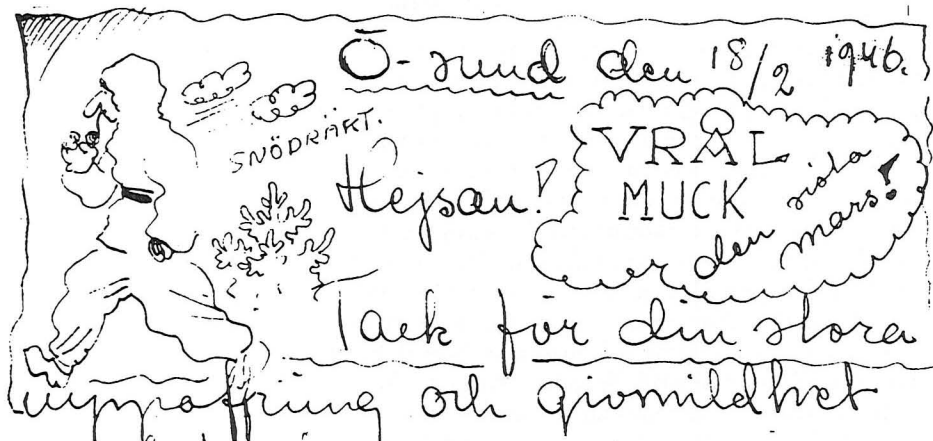 Ö-sund den 18/2 1946.
SNÖDRÄKT.
Hejsan!
VRÅL
MUCK
den sista
mars!
Tack för din stora
uppoffring och givmildhet